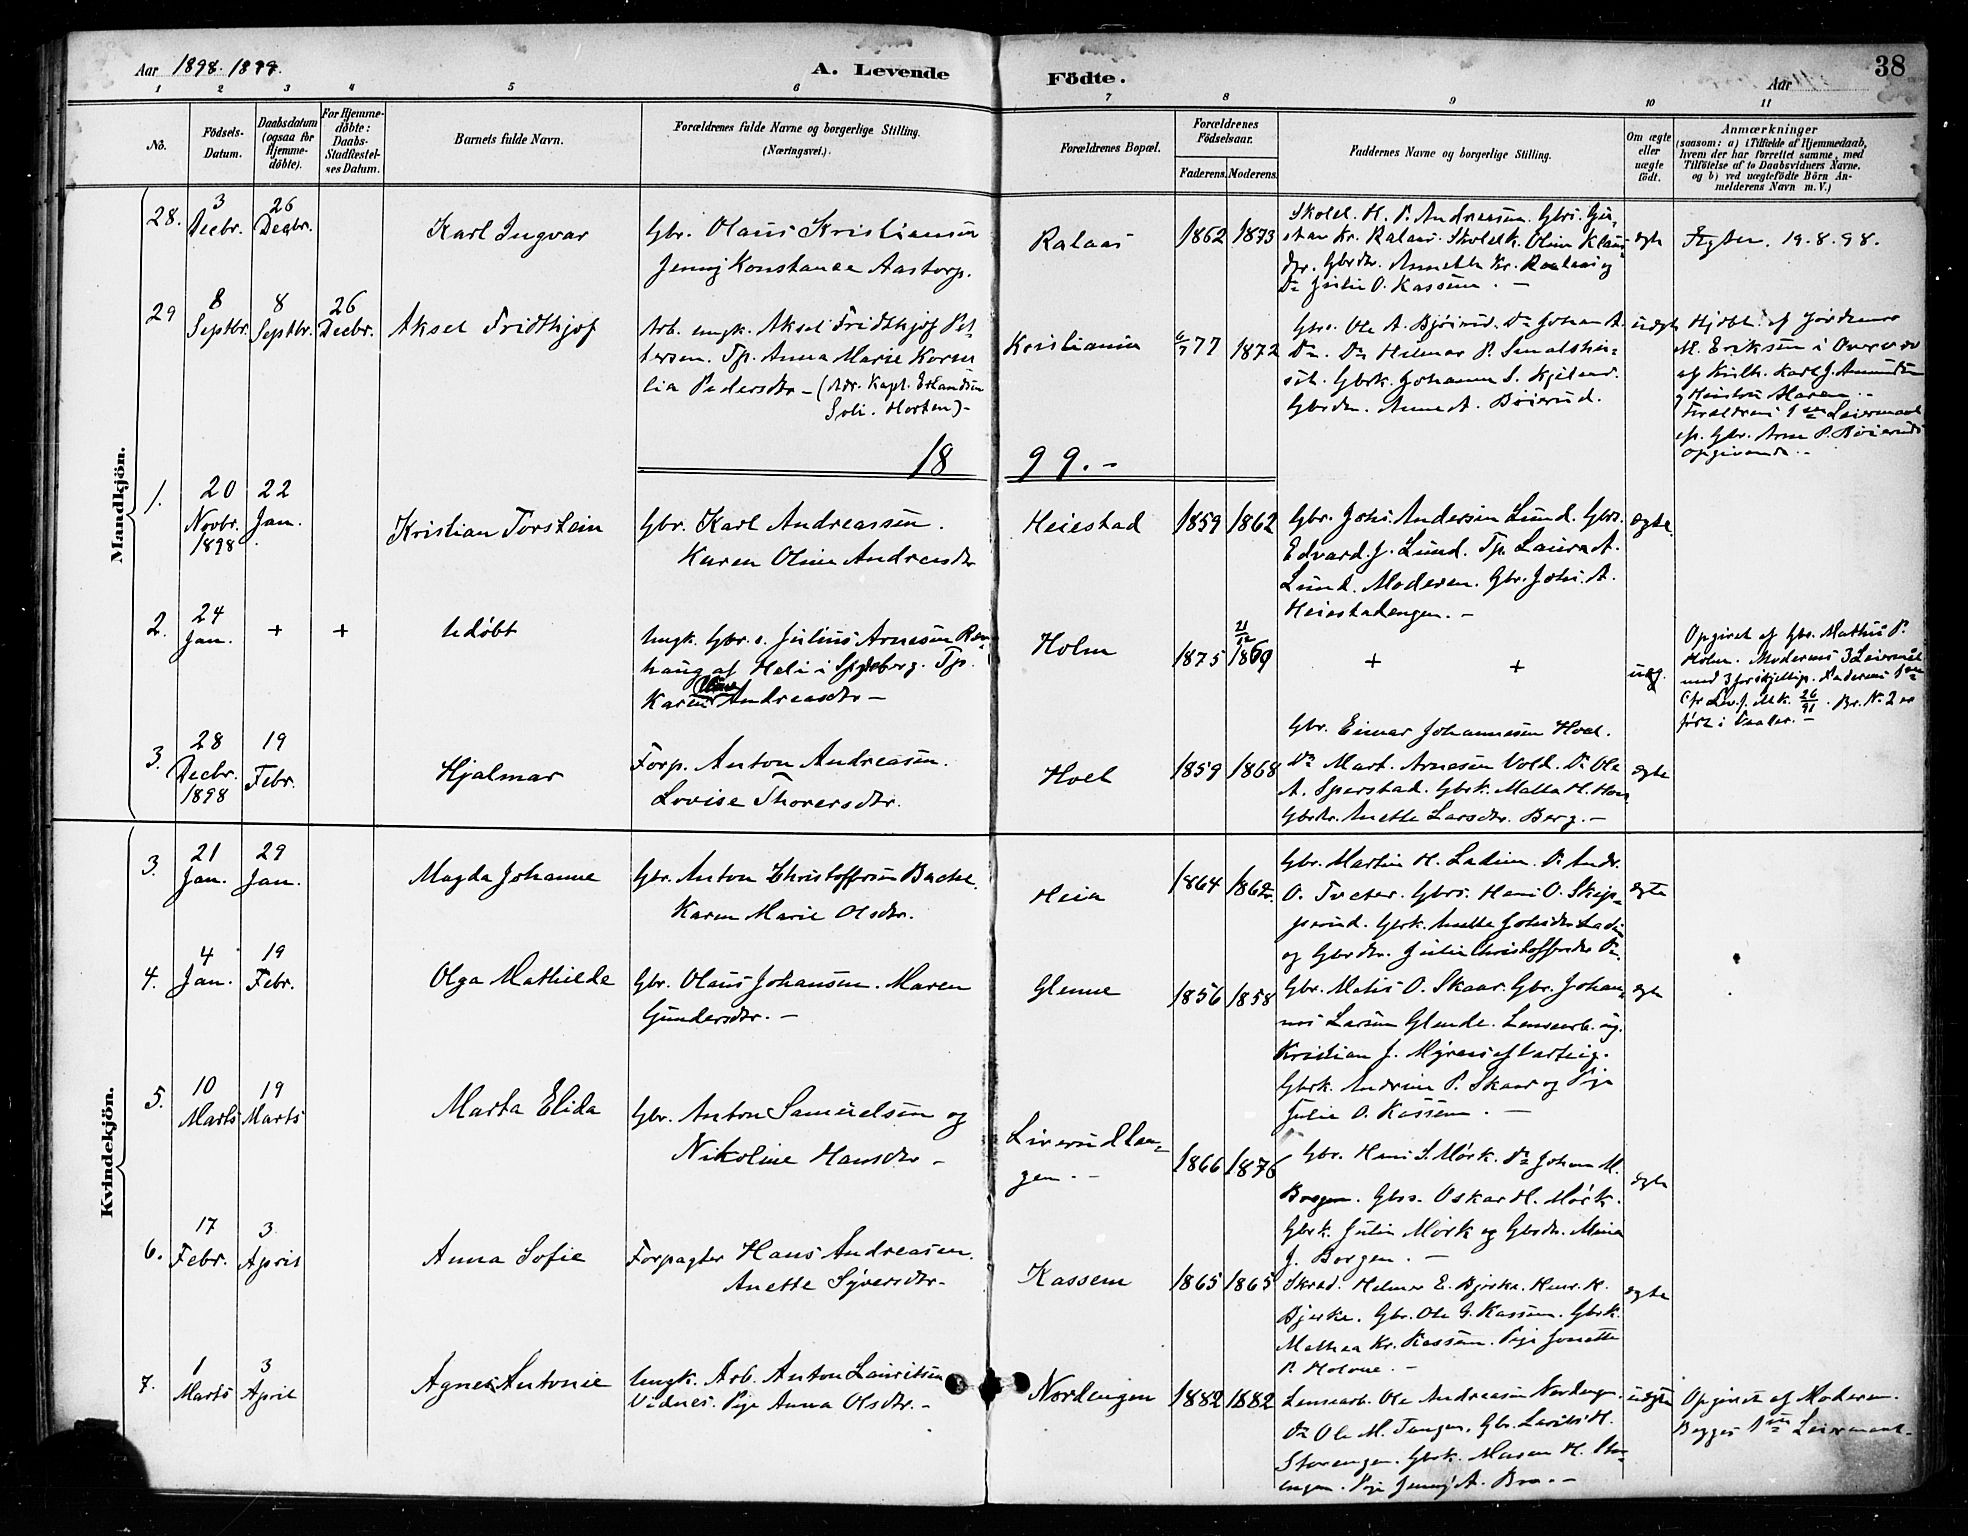 Aar 1898. 1899.
A. Levende Födte.
Aar
38
1 2 3 4 5 6 7 8 9 10 11
No.
Födsels-Datum.
Daabsdatum (ogsaa for Hjemmedöbte).
For Hjemmedöbte: Daabs-Stadfæstelses Datum.
Barnets fulde Navn.
Forældrenes fulde Navne og borgerlige Stilling. (Næringsvei.)
Forældrenes Bopæl.
Forældrenes Födselsaar.
Faderens. Moderens.
Faddernes Navne og borgerlige Stilling.
Om ægte eller uægte födt.
Anmærkninger
(saasom: a) i Tilfælde af Hjemmedaab, hvem der har forrettet samme, med Tilföielse af to Daabsvidners Navne. og b) ved uægtefödte Börn Anmelderens Navn m. V.)
Mandkjön.
28. 3 Decbr. 26 Decbr.
Karl Ingvar
Gbr. Olaus Kristiansen
Jenny Konstance Aastorp.
Ralaas
1862 1873
Skolel. H. P. Andreasen. Gbrs. Gustav Kr. Ralaas.
ægte
Ægtev. 19.8.98.
29 8 Septbr. 8 Septbr. 26 Decbr.
Aksel Fridthjof
Arb. ungk. Aksel Fridthjof Pettersen. Tp. Anna Marie Kornelia Pedersdtr. –
Kristiania
77 1872
Gbrs. Ole A. Bøierud. Do Johan A. Do. Do Hilmar P.
Gbrk. Johanne S.
Gbrdtr. Anne A. Bøierud.
uægte
Hjdbt. af Jordmor M. Eriksen i
opgivende. –
1899. –
1. 20 Novbr. 1898 22 Jan.
Kristian Torstein
Gbr. Karl Andreassen.
Karen Oline Andreasdtr
Heiestad
1859 1862
Gbr. Johs. Andersen Lund. Gbrs.
Edvard J. Lund. Tp. Laura A.
Lund. Moderen. Gbr. Johs. A.
Heiestadengen. –
ægte.
2. 24 Jan. + +
Udøbt
Ungk. Gbr. s. Julius Arnesen
af Heli i Spydeberg. Tp.
Karen Oline Andreasdtr –
Holm
1875 21/12 1869
+ +
uæg.
Opgivet af Gbr. Mathis P. Holm. Moderens 3 Leiermaal med 3 forskjellige. Faderens 1ste
26/91. Br. N. 2 er ført i Vaaler. –
3. 28 Decbr. 1898 19 Febr.
Hjalmar
Forp. Anton Andreasen.
Lovise Thoresdtr.
Hoel
1859 1868
Gbr. Einar Johannesen Hoel.
Do Mart. Arnesen Vold. Do Ole
A. Sperstad. Gbrk. Mathea H.
Gbrdtr. Anette Larsdtr. Berg. –
ægte
Kvindekjön.
3. 21 Jan. 29 Jan.
Magda Johanne
Gbr. Anton Christoffersen Bache.
Karen Marie Olsdtr.
Heia
1864 1862
Gbr. Martin H. Ladim. Do Andr.
O. Tveter. Gbrs. Hans O. Skipperud.
Gbrk. Anette
og Gbrdtr. Julie Christoffersdtr Do.
ægte
4. 4 Jan. 19 Febr.
Olga Mathilde
Gbr. Olaus Johansen. Maren
Gundersdtr. –
Glenne
1856 1858
Gbr. Mathis O. Skaar. Gbr. Johannes Larsen Glende.
Kristian J. Myrens af Varteig.
Gbrk. Andrine P. Skaar og Pige
Julie O. Kassem. –
ægte
5. 10 Marts 19 Marts
Marta Elida
Gbr. Anton Samuelsen og
Nikoline Hansdtr –
1866 1876
Gbr. Hans S. Mørk. Do Johan M.
Borgen. Gbrs. Oskar H. Mørk.
Gbrk. Julie Mørk og Gbrdtr. Mina
J. Borgen. –
ægte
6. 17 Febr. 3 April
Anna Sofie
Forpagter Hans Andreasen.
Anette Syversdtr –
Kassem
1865 1865
Skræd. Helmer E. Bjerke.
Bjerke. Gbr. Ole G. Kassem. Gbrk.
Mathea Kr. Kassem. Pige Jonette
ægte
7. 1 Marts 3 April
Agnes Antonie
Ungk. Arb. Anton Lauritsen
Vidnes. Pige Anna Olsdtr. –
Nordengen
1882 1882
Lensearb. Ole Andreasen Nordengen.
Do Ole M. Tangen. Gbr. Lavits H.
Storengen. Gbrk. Maren H. Storengen. Pige Jenny A. Bra. –
uægte
Opgivet af Moderen.
Begges 1ste Leiermaal.